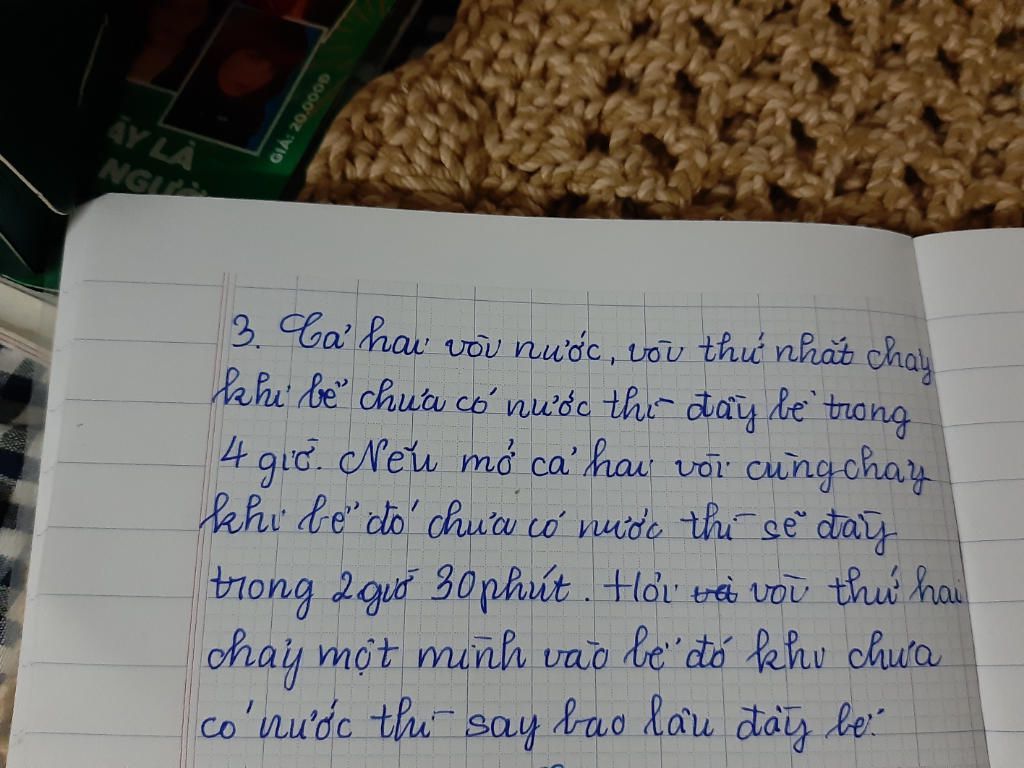 ẤY LÀ
NGƯỜI
GIÁ: 20.000Đ
3. Có hai vòi nước, vòi thứ nhất chảy
khi bể chưa có nước thì đầy bể trong
4 giờ. Nếu mở cả hai vòi cùng chảy
khi bể đó chưa có nước thì sẽ đầy
trong 2 giờ 30 phút. Hỏi vòi thứ hai
chảy một mình vào bể đó khi chưa
có nước thì say bao lâu đầy bể.